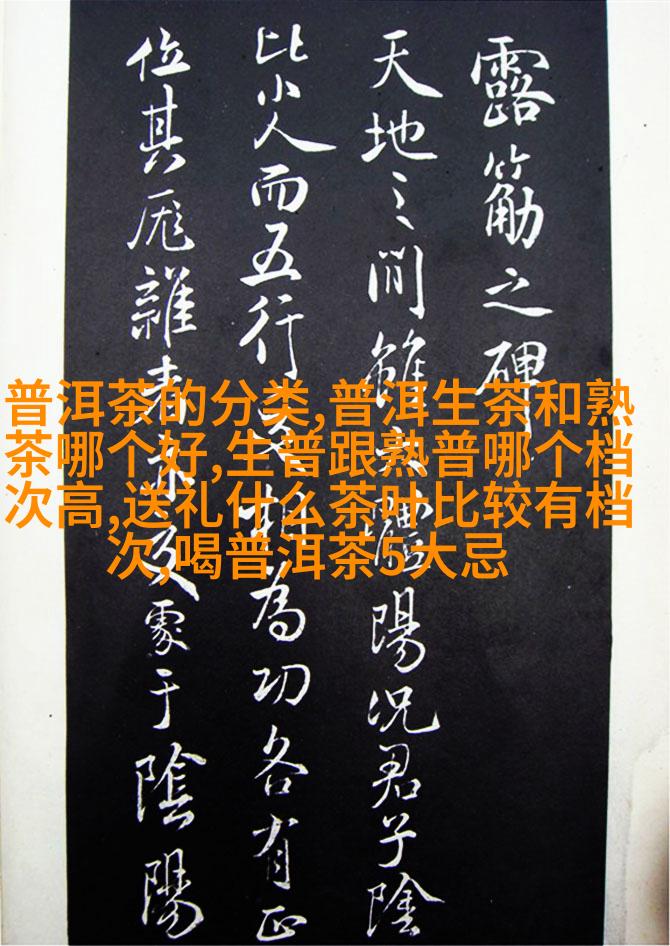 露筋之碑
天地之間雖陽況君子陰
比小人而五行為功各有正
位其厖雜于陰陽
普洱茶的分类,普洱生茶和熟
茶哪个好,生普跟熟普哪个档
次高,送礼什么茶叶比较有档
次,喝普洱茶5大忌